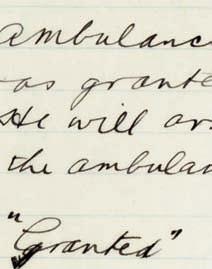 ambulanc
as grante
He will ar
the ambulan
"Granted"